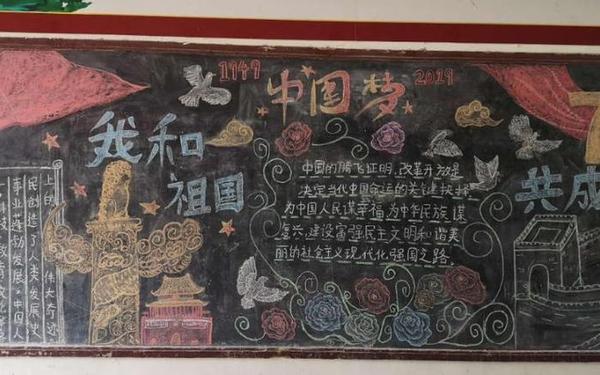 1949 中国梦 2019
我和
祖国
共成
科技、教育文化
事业蓬勃发展,中国人
民创造了人类发展史
上的伟大奇迹
中国的腾飞证明,改革开放是
决定当代中国命运的关键抉择
为中国人民谋幸福,为中华民族谋
复兴,建设富强民主文明和谐美
丽的社会主义现代化强国之路.